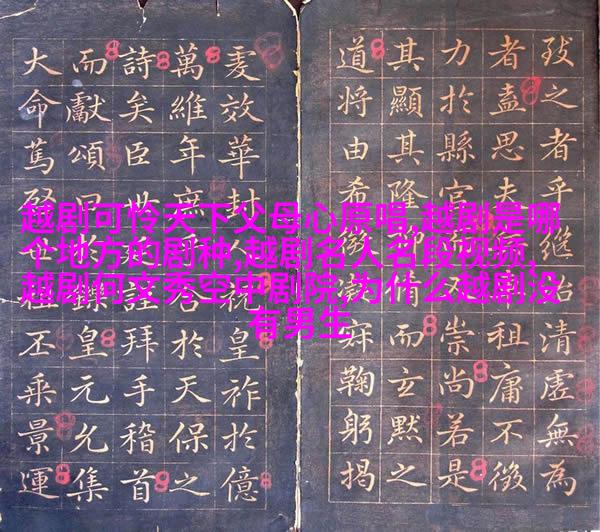 越剧可怜天下父母心原唱,越剧是哪
个地方的剧种,越剧名人名段视频,
越剧何文秀空中剧院,为什么越剧没
有男生
之者乎繼治清虛無為
者盍思夫祖庸不徵
力於縣崇尚若是
其顯其隆而玄默之
道將由希鞠躬揭
爰效華封祝皇祚於億
萬維年庶於天保之
詩矣臣世拜手稽首
而獻頌曰皇元允集
大命篤丕乘景運